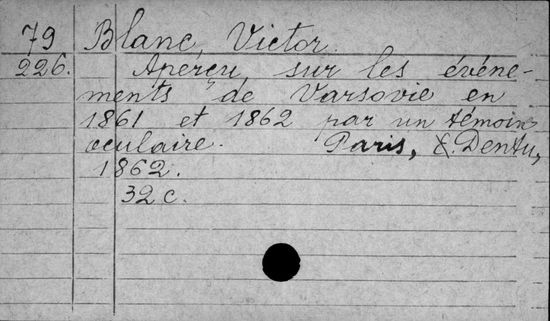 79 Blanc, Victor.
226. Aperçu sur les événe-
ments de Varsovie en
1861 et 1862 par un témoin
oculaire. Paris, E. Dentu,
1862.
32 c.